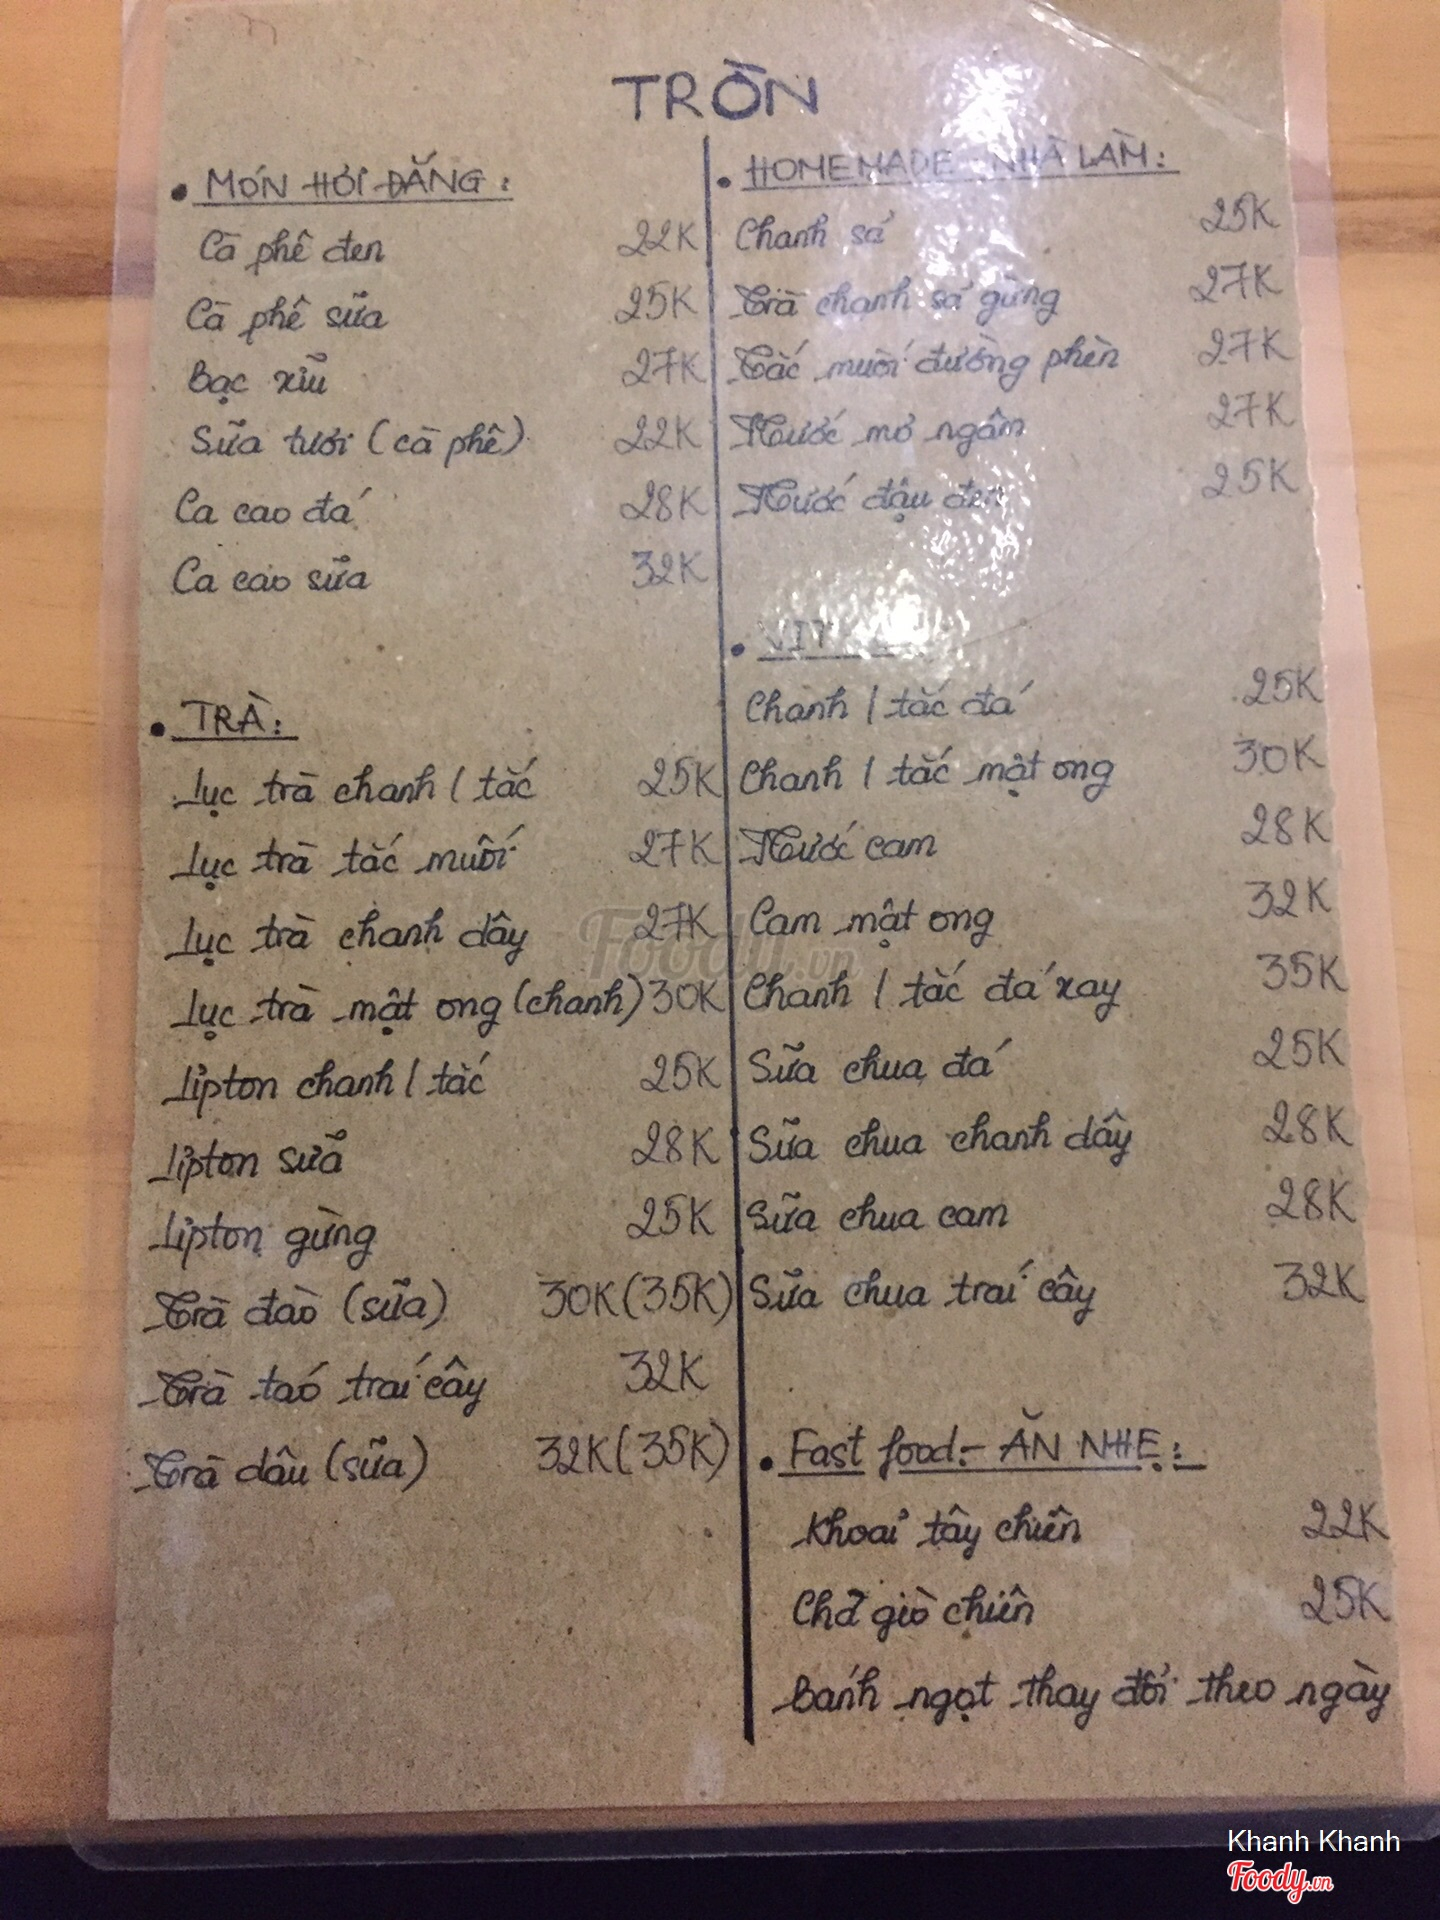 TRÒN
• MÓN HƠI ĐẮNG:
Cà phê đen 22K
Cà phê sữa 25K
Bạc xỉu 27K
Sữa tươi (cà phê) 22K
Ca cao đá 28K
Ca cao sữa 32K
• TRÀ:
Lục trà chanh / tắc 25K
Lục trà tắc muối 27K
Lục trà chanh dây 27K
Lục trà mật ong (chanh) 30K
Lipton chanh / tắc 25K
Lipton sữa 28K
Lipton gừng 25K
Trà đào (sữa) 30K (35K)
Trà táo trái cây 32K
Trà dâu (sữa) 32K (35K)
• HOMEMADE - NHÀ LÀM:
Chanh sả 25K
Trà chanh sả gừng 27K
Tắc muối đường phèn 27K
Nước mơ ngâm 27K
Nước đậu đen 25K
•
Chanh / tắc đá 25K
Chanh / tắc mật ong 30K
Nước cam 28K
Cam mật ong 32K
Chanh / tắc đá xay 35K
Sữa chua đá 25K
Sữa chua chanh dây 28K
Sữa chua cam 28K
Sữa chua trái cây 32K
• Fast food - ĂN NHẸ:
Khoai tây chiên 22K
Chả giò chiên 25K
Bánh ngọt thay đổi theo ngày
Foody.vn
Khanh Khanh
Foody.vn